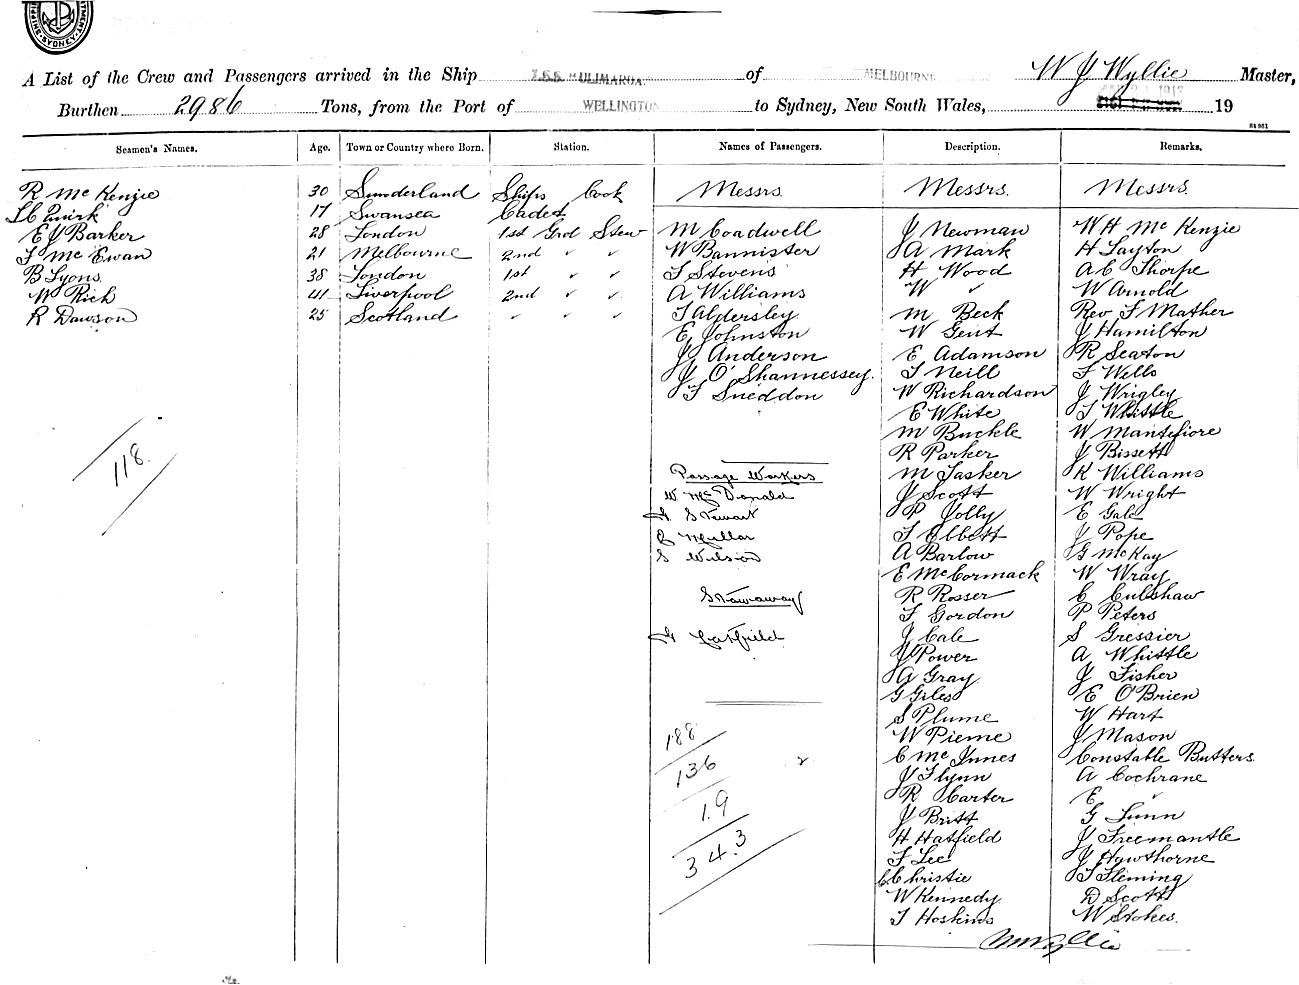 SYDNEY
A List of the Crew and Passengers arrived in the Ship T.S.S. "ULIMAROA" of MELBOURNE W J Wyllie Master,
Burthen 2986 Tons, from the Port of WELLINGTON to Sydney, New South Wales, 1913 19
Seamen's Names. Age. Town or Country where Born. Station. Names of Passengers. Description. Remarks.
R McKenzie 30 Sunderland Ships Cook
L C Quirk 17 Swansea Cadet
E J Barker 28 London 1st Grd Stew
T McEwan 21 Melbourne 2nd " "
B Lyons 38 London 1st " "
W Rich 41 Liverpool 2nd " "
R Dawson 25 Scotland " " "
118
Messrs
M Coadwell
W Bannister
T Stevens
A Williams
T Aldersley
E Johnston
J Anderson
J O'Shannessey.
T Sneddon
Passage Workers
W McDonald
H Stewart
S Wilson
Stowaway
H Hatfield
188
136
19
343
Messrs.
J Newman
A Mark
H Wood
W "
M Beck
W Gent
E Adamson
T Neill
W Richardson
E White
M Buckle
R Parker
M Tasker
J Scott
P Jolly
T Elbett
A Barlow
E McCormack
R Rosser
T Gordon
J Cale
J Power
A Gray
G Giles
S Plume
W Pieme
C McInnes
J Flynn
R Carter
J Britt
H Hatfield
F Lee
C Christie
W Kennedy
T Hoskins
Messrs.
W H McKenzie
H Layton
A C Thorpe
W Arnold
Rev F Mather
J Hamilton
R Seaton
F Wells
J Wrigley
T Whistle
W Mantefiore
J Bissett
K Williams
W Wright
E Gale
J Pope
G McKay
W Wray
C Culshaw
P Peters
S Gressier
A Whistle
J Fisher
E O'Brien
W Hart
J Mason
Constable Butters
A Cochrane
E "
G Lunn
J Freemantle
J Hawthorne
T Fleming
D Scott
W Stokes.
WJWyllie